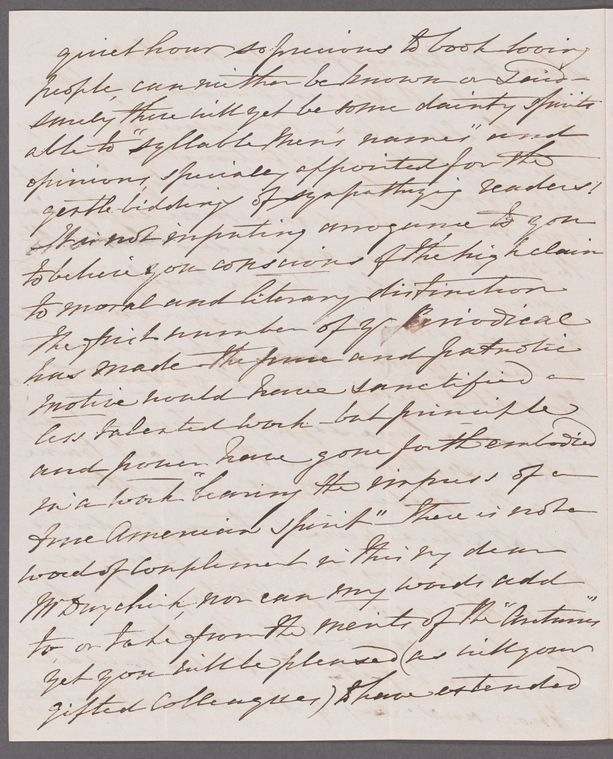 quiet hour so precious to book loving
people, can neither be known or
surely there will yet be some dainty spirits
able to "syllable men's names" and
opinions, specialy appointed for the
gentle bidding of sympathizing readers!
It is not imputing arrogance to you
to believe you conscious of the high claim
to moral and literary distinction
the first number of yr Periodical
has made the pure and patriotic
motive would have sanctified a
less talented work - but principle
and power have gone forth embodied
in a work "bearing the impress of a
true American spirit" There is not a
word of compliment in this my dear
Mr Duyckink, nor can my words add
to, or take from the merits of the "Arcturus"
yet you will be pleased (as will your
gifted Colleagues) to have extended